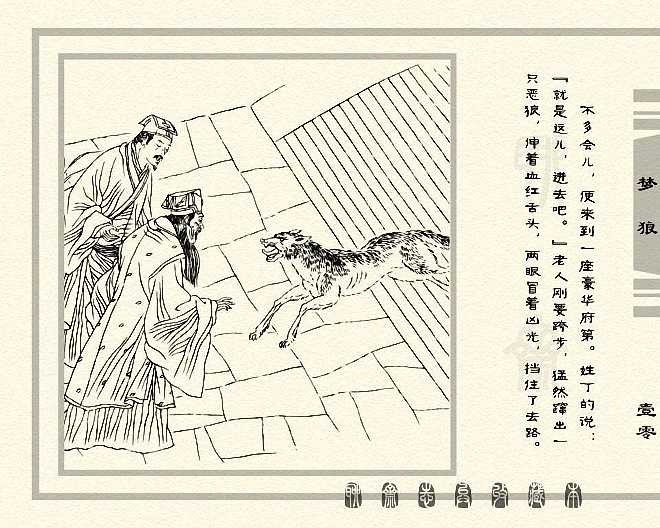 不多会儿，便来到一座豪华府第。姓丁的说：
『就是这儿，进去吧。』老人刚要跨步，猛然蹿出一
只恶狼，伸着血红舌头，两眼冒着凶光，挡住了去路。
梦狼
壹零